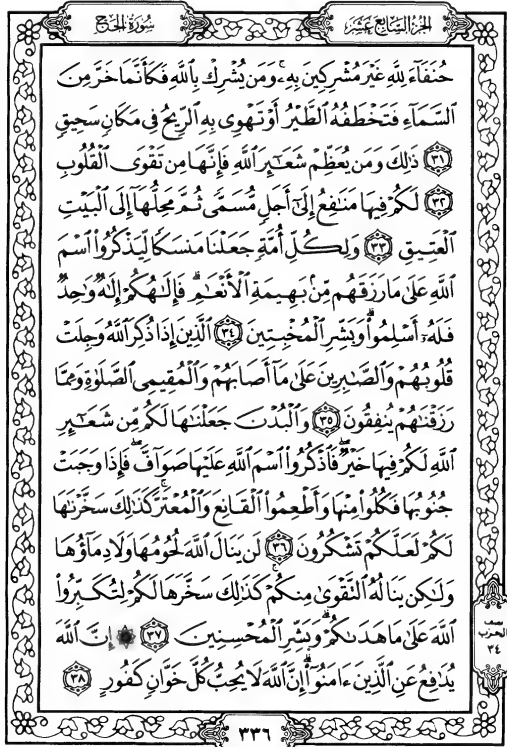 الجزء السابع عشر
سورة الحج
حُنَفَآءَ لِلَّهِ غَيْرَ مُشْرِكِينَ بِهِۦۚ وَمَن يُشْرِكْ بِٱللَّهِ فَكَأَنَّمَا خَرَّ مِنَ
ٱلسَّمَآءِ فَتَخْطَفُهُ ٱلطَّيْرُ أَوْ تَهْوِى بِهِ ٱلرِّيحُ فِى مَكَانٍ سَحِيقٍ
٣١ ذَٰلِكَ وَمَن يُعَظِّمْ شَعَـٰٓئِرَ ٱللَّهِ فَإِنَّهَا مِن تَقْوَى ٱلْقُلُوبِ
٣٢ لَكُمْ فِيهَا مَنَـٰفِعُ إِلَىٰٓ أَجَلٍ مُّسَمًّى ثُمَّ مَحِلُّهَآ إِلَى ٱلْبَيْتِ
ٱلْعَتِيقِ ٣٣ وَلِكُلِّ أُمَّةٍ جَعَلْنَا مَنسَكًا لِّيَذْكُرُوا۟ ٱسْمَ
ٱللَّهِ عَلَىٰ مَا رَزَقَهُم مِّنۢ بَهِيمَةِ ٱلْأَنْعَـٰمِۗ فَإِلَـٰهُكُمْ إِلَـٰهٌ وَٰحِدٌ
فَلَهُۥٓ أَسْلِمُوا۟ۗ وَبَشِّرِ ٱلْمُخْبِتِينَ ٣٤ ٱلَّذِينَ إِذَا ذُكِرَ ٱللَّهُ وَجِلَتْ
قُلُوبُهُمْ وَٱلصَّـٰبِرِينَ عَلَىٰ مَآ أَصَابَهُمْ وَٱلْمُقِيمِى ٱلصَّلَوٰةِ وَمِمَّا
رَزَقْنَـٰهُمْ يُنفِقُونَ ٣٥ وَٱلْبُدْنَ جَعَلْنَـٰهَا لَكُم مِّن شَعَـٰٓئِرِ
ٱللَّهِ لَكُمْ فِيهَا خَيْرٌۖ فَٱذْكُرُوا۟ ٱسْمَ ٱللَّهِ عَلَيْهَا صَوَآفَّۖ فَإِذَا وَجَبَتْ
جُنُوبُهَا فَكُلُوا۟ مِنْهَا وَأَطْعِمُوا۟ ٱلْقَانِعَ وَٱلْمُعْتَرَّۚ كَذَٰلِكَ سَخَّرْنَـٰهَا
لَكُمْ لَعَلَّكُمْ تَشْكُرُونَ ٣٦ لَن يَنَالَ ٱللَّهَ لُحُومُهَا وَلَا دِمَآؤُهَا
وَلَـٰكِن يَنَالُهُ ٱلتَّقْوَىٰ مِنكُمْۚ كَذَٰلِكَ سَخَّرَهَا لَكُمْ لِتُكَبِّرُوا۟
ٱللَّهَ عَلَىٰ مَا هَدَىٰكُمْۗ وَبَشِّرِ ٱلْمُحْسِنِينَ ٣٧ ۞ إِنَّ ٱللَّهَ
يُدَٰفِعُ عَنِ ٱلَّذِينَ ءَامَنُوٓا۟ۗ إِنَّ ٱللَّهَ لَا يُحِبُّ كُلَّ خَوَّانٍ كَفُورٍ ٣٨
نصف
الحزب
٣٤
٣٣٦